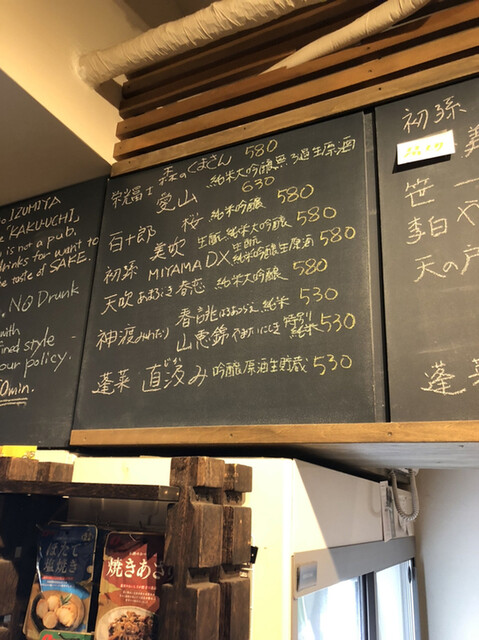 IZUMIYA
"KAKU-UCHI"
is not a pub.
drinks for want to
taste of SAKE.
No Drunk
with
style
our policy.
0min.
森のくまさん 580
栄光冨士 純米大吟醸無ろ過生原酒
愛山 630
百十郎 桜 純米吟醸 580
初孫 美吹 生酛純米大吟醸 580
MIYAMA DX 生酛純米吟醸生原酒 580
天吹 あまぶき 春恋 純米大吟醸 580
神渡(みわたり) 春誂 はるあつらえ 純米 530
山恵錦 やまけいにしき 特別純米 530
蓬莱 直汲み じか 吟醸原酒生貯蔵 530
初孫
笹一
李白
天の戸
蓬
ほたて
塩焼き
焼きあさ